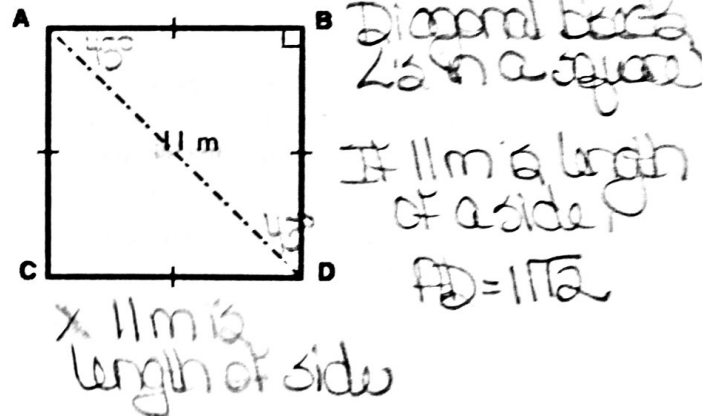 A
B
45°
11 m
45°
C
D
Diagonal
∠s in a square
If 11m is length
of a side,
AD = 11√2
x 11m is
length of side